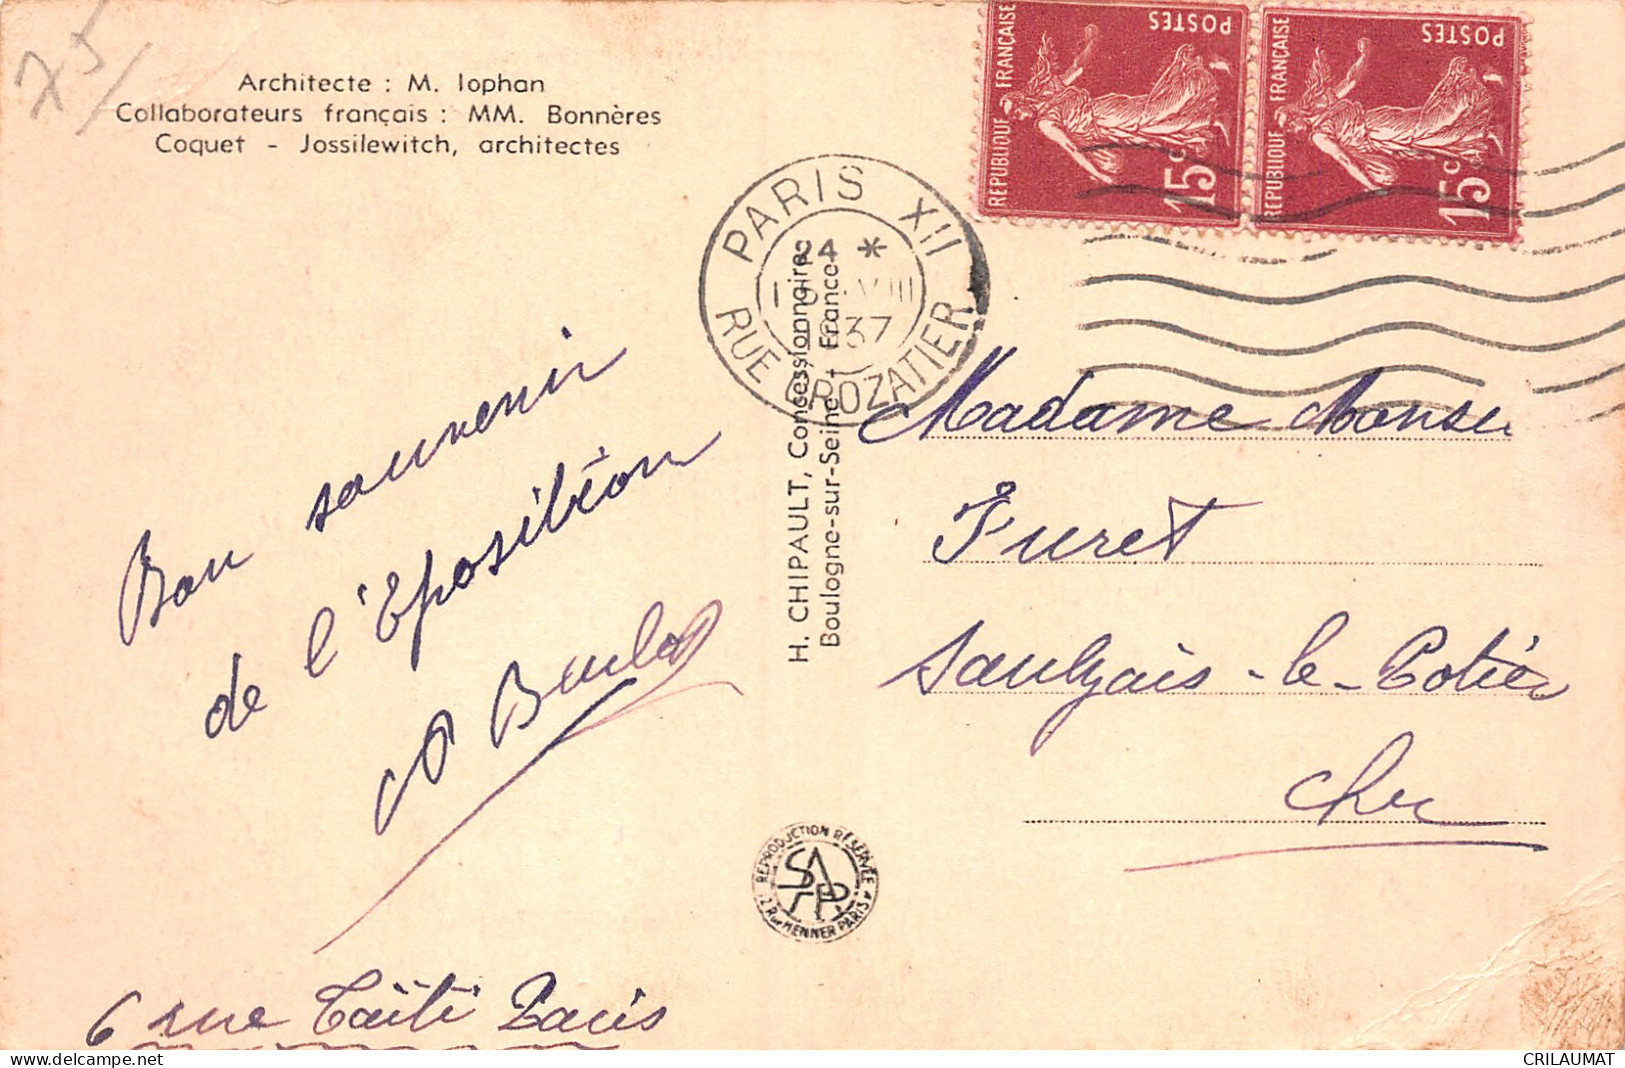 75/
Architecte : M. Iophan
Collaborateurs français : MM. Bonnères
Coquet - Jossilewitch, architectes
POSTES
REPUBLIQUE FRANÇAISE
15c
POSTES
REPUBLIQUE FRANÇAISE
15c
PARIS XII
24 *
VIII
1937
RUE CROZATIER
H. CHIPAULT, Concessionnaire
Boulogne-sur-Seine - France
Bon souvenir
de l'Eposition
Madame
Furet
Saulzais-le-Potier
Cher
REPRODUCTION RÉSERVÉE
SAPR
2 Rue MENNER PARIS
6 rue Taïti Paris
delcampe.net
CRILAUMAT